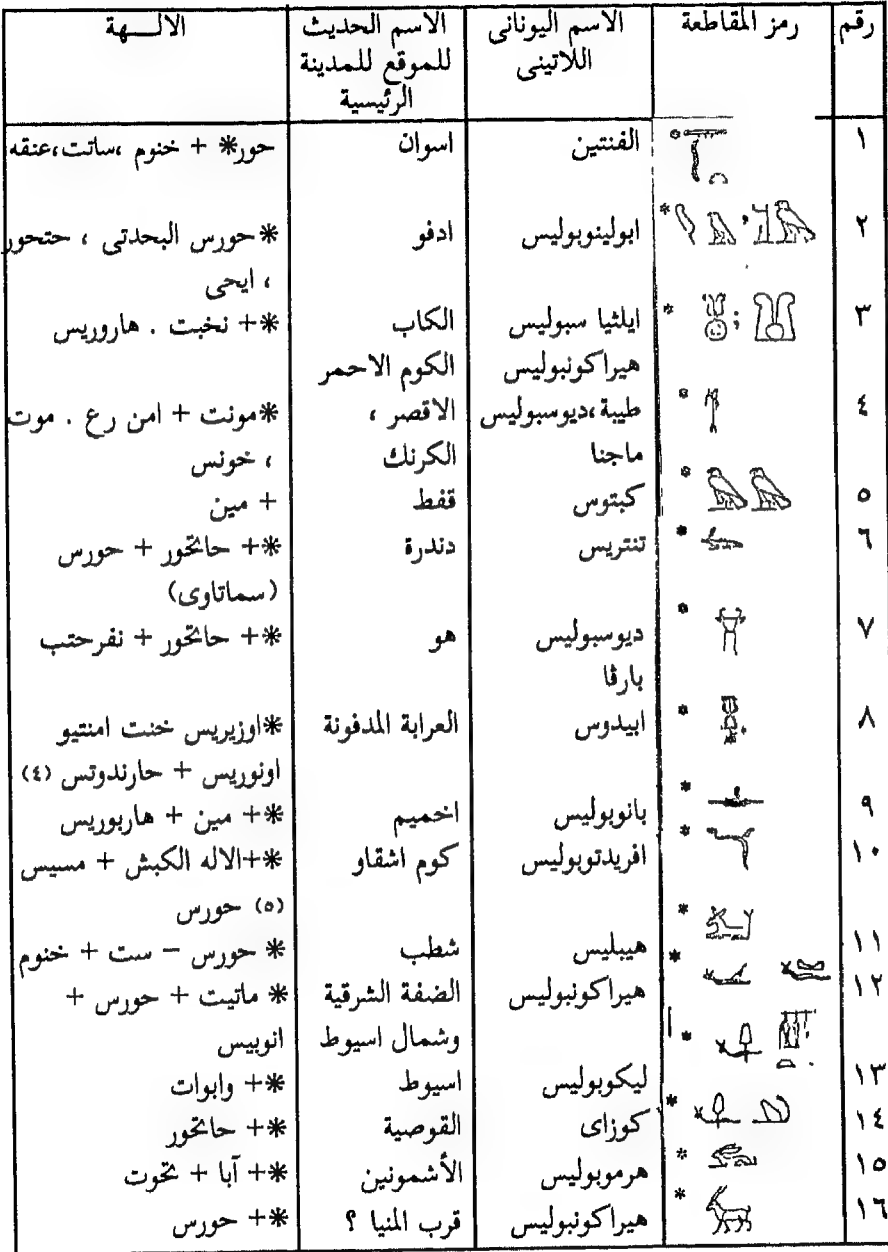 رقم رمز المقاطعة الاسم اليونانى الاسم الحديث الالـــهة
اللاتينى للموقع للمدينة
الرئيسية
١ الفنتين اسوان حور* + خنوم ،ساتت،عنقه
٢ ابولينوبوليس ادفو *حورس البحدتى ، حتحور
، ايحى
٣ ايلثيا سبوليس الكاب *+ نخبت . هاروريس
هيراكونبوليس الكوم الاحمر
٤ طيبة،ديوسبوليس الاقصر ، *مونت + امن رع . موت
ماجنا الكرنك ، خونس
٥ كبتوس قفط + مين
٦ تنتريس دندرة *+ حاتحور + حورس
(سماتاوى)
٧ ديوسبوليس هو *+ حاتحور + نفرحتب
بارڤا
٨ ابيدوس العرابة المدفونة *اوزيريس خنت امنتيو
اونوريس + حارندوتس (٤)
٩ بانوبوليس اخميم *+ مين + هاربوريس
١٠ افريدتوبوليس كوم اشقاو *+الاله الكبش + مسيس
(٥) حورس
١١ هيبليس شطب * حورس – ست + خنوم
١٢ هيراكونبوليس الضفة الشرقية * ماتيت + حورس +
أ وشمال اسيوط انوبيس
١٣ ليكوبوليس اسيوط *+ وابوات
١٤ كوزاى القوصية *+ حاتحور
١٥ هرموبوليس الأشمونين *+ آبا + تحوت
١٦ هيراكونبوليس قرب المنيا ؟ *+ حورس